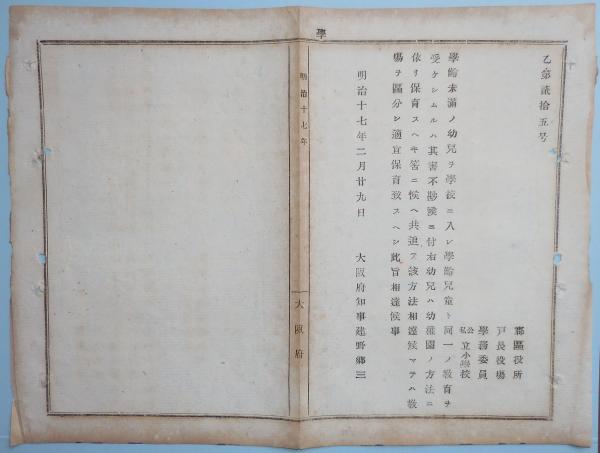 乙第貳拾五号
郡區役所
戸長役塲
學務委員
公私立小學校
學齡未滿ノ幼兒ヲ學校ニ入レ學齡兒童ト同一ノ敎育ヲ
受ケシムルハ其害不尠候ニ付右幼兒ハ幼稚園ノ方法ニ
依リ保育スヘキ筈ニ候ヘ共追テ該方法相達候マテハ敎
塲ヲ區分シ適宜保育致スヘシ此旨相達候事
明治十七年二月廿九日
大阪府知事建野鄕三
學
明治十七年
大阪府